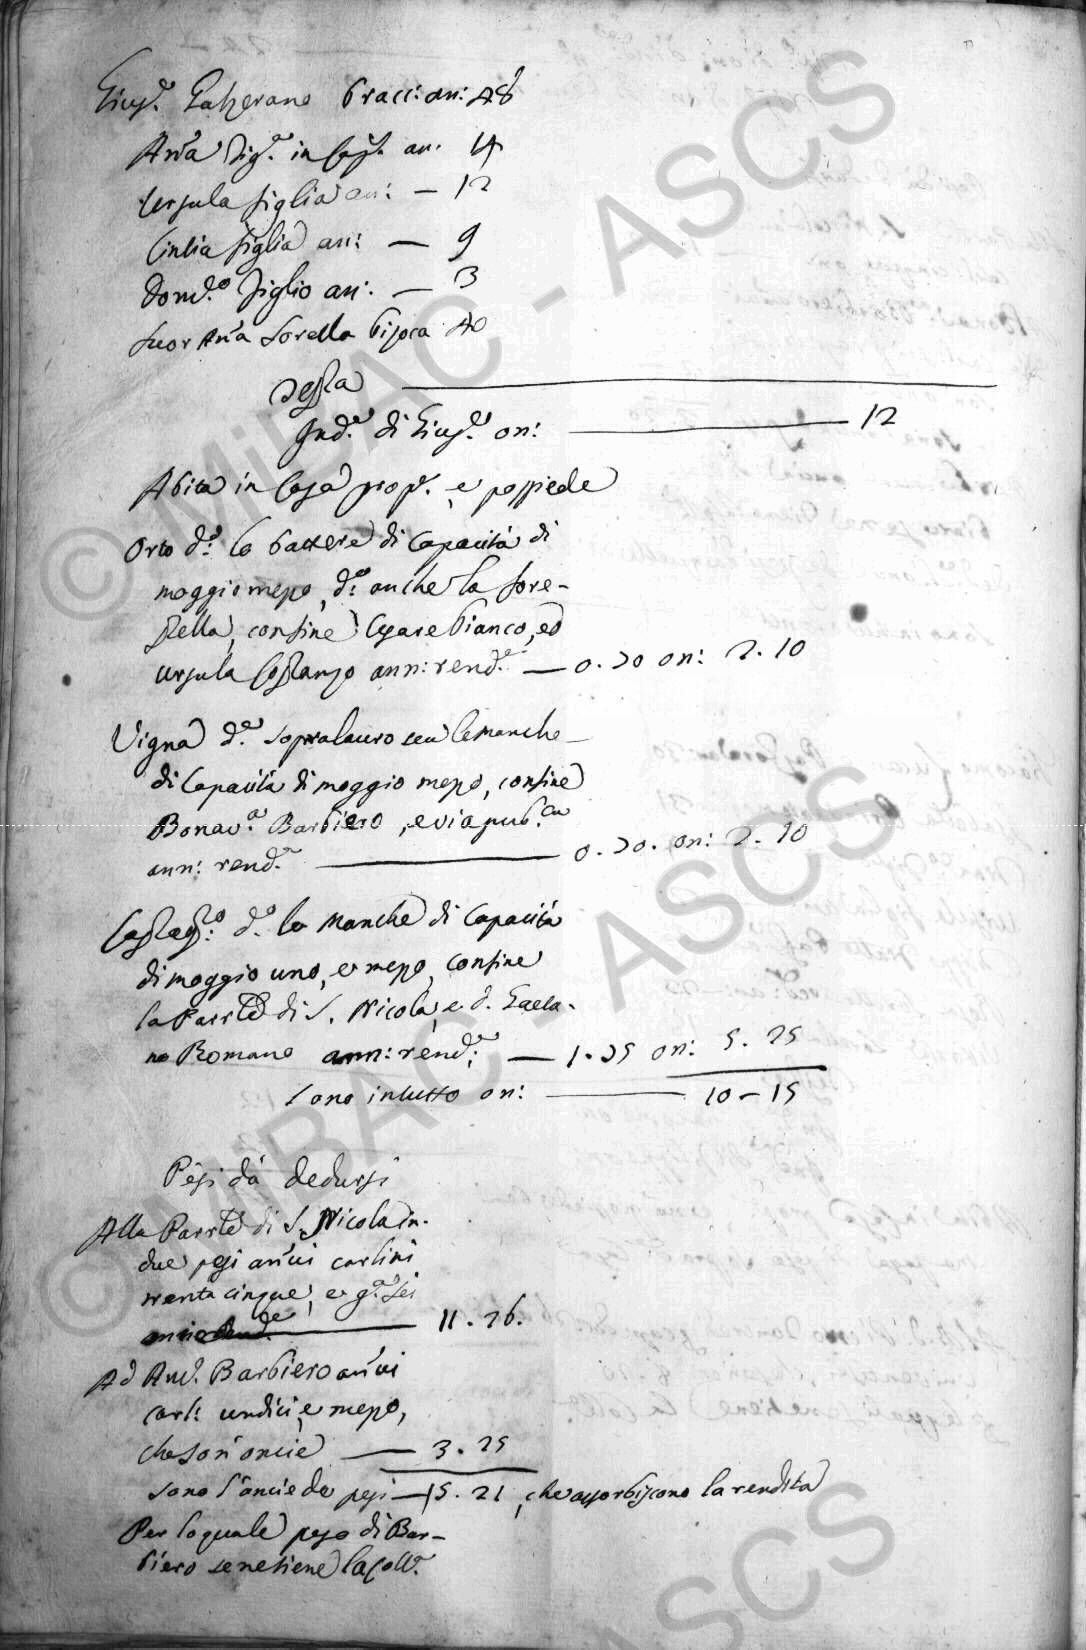 Giusp.e Galzerano Bracci: an: 48
Anna figl.a in cap. an. 14
Ursula figlia an: — 12
Cintia figlia an: — 9
Dom.co figlio an: — 3
Suor Anna sorella bizoca 40
Testa
Ind.a di Giusp.e on: 12
Abita in Casa prop.a e possiede
Orto d.o lo Battere di capacità di
moggio mezo, d.o anche la fore-
stella, confine Cesare Bianco, ed
Ursula Costanzo ann: rend.a — 0.70 on: 2.10
Vigna d.a sopralauro seu le manche
di capacità di moggio mezo, confine
Bonav.a Barbiero, e via pub.ca
ann: rend.a 0.70. on: 2.10
Castag.o d.o le Manche di capacità
di moggio uno, e mezo, confine
la Parr.le di S. Nicola, e d. Gaeta-
no Romano ann: rend.a — 1.75 on: 5.25
Sono in tutto on: 10-15
Pesi da dedursi
Alla Parr.le di S. Nicola in
due pesi annui carlini
trenta cinque, e g.a sei
11.26.
Ad And. Barbiero annui
carl: undici, e mezo,
che son oncie — 3.25
Sono l'oncie de pesi — 15.21, che assorbiscono la rendita
Per lo quale peso di Bar-
biero se ne tiene la coll.a
© MiBAC - ASCS
© MiBAC - ASCS
ASCS